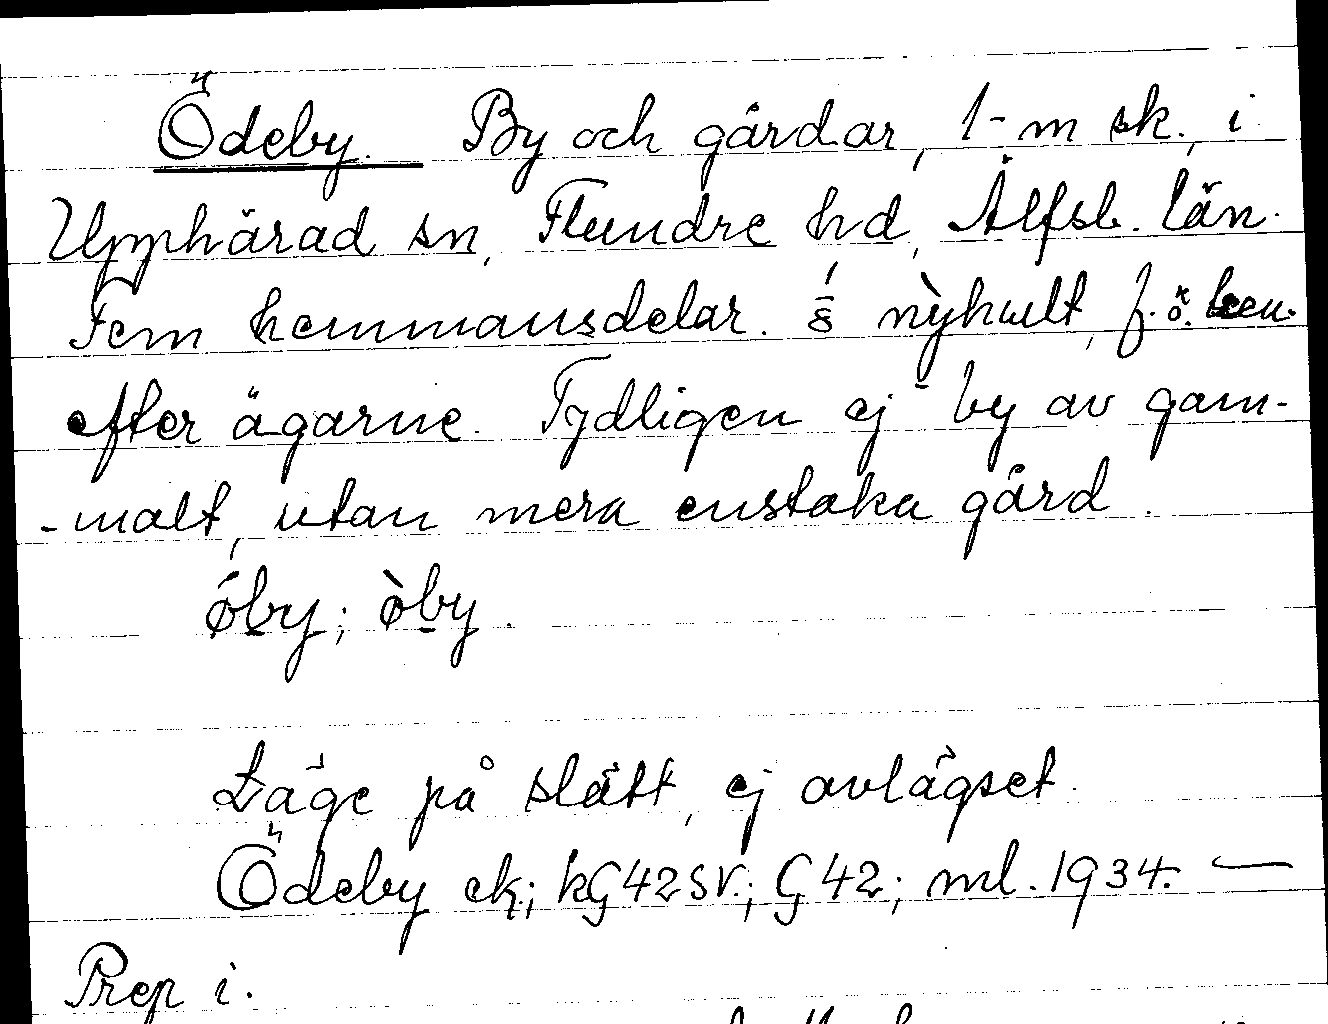 Ödeby. By och gårdar, 1-m sk., i
Upphärad sn, Flundre hd, Älfsb. län.
Fem hemmansdelar. 1/8 nỳhult, f.ö. ben.
efter ägarne. Tydligen ej by av gam-
-malt, utan mera enstaka gård.
ǿby; ø̀by.
Läge på slätt, ej avlägset.
Ödeby ek; kG42SV.; G42; ml. 1934. —
Prep i.